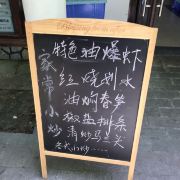 特色油爆虾
红烧划水
油焖春笋
椒盐排条
清炒马兰头
家常小炒